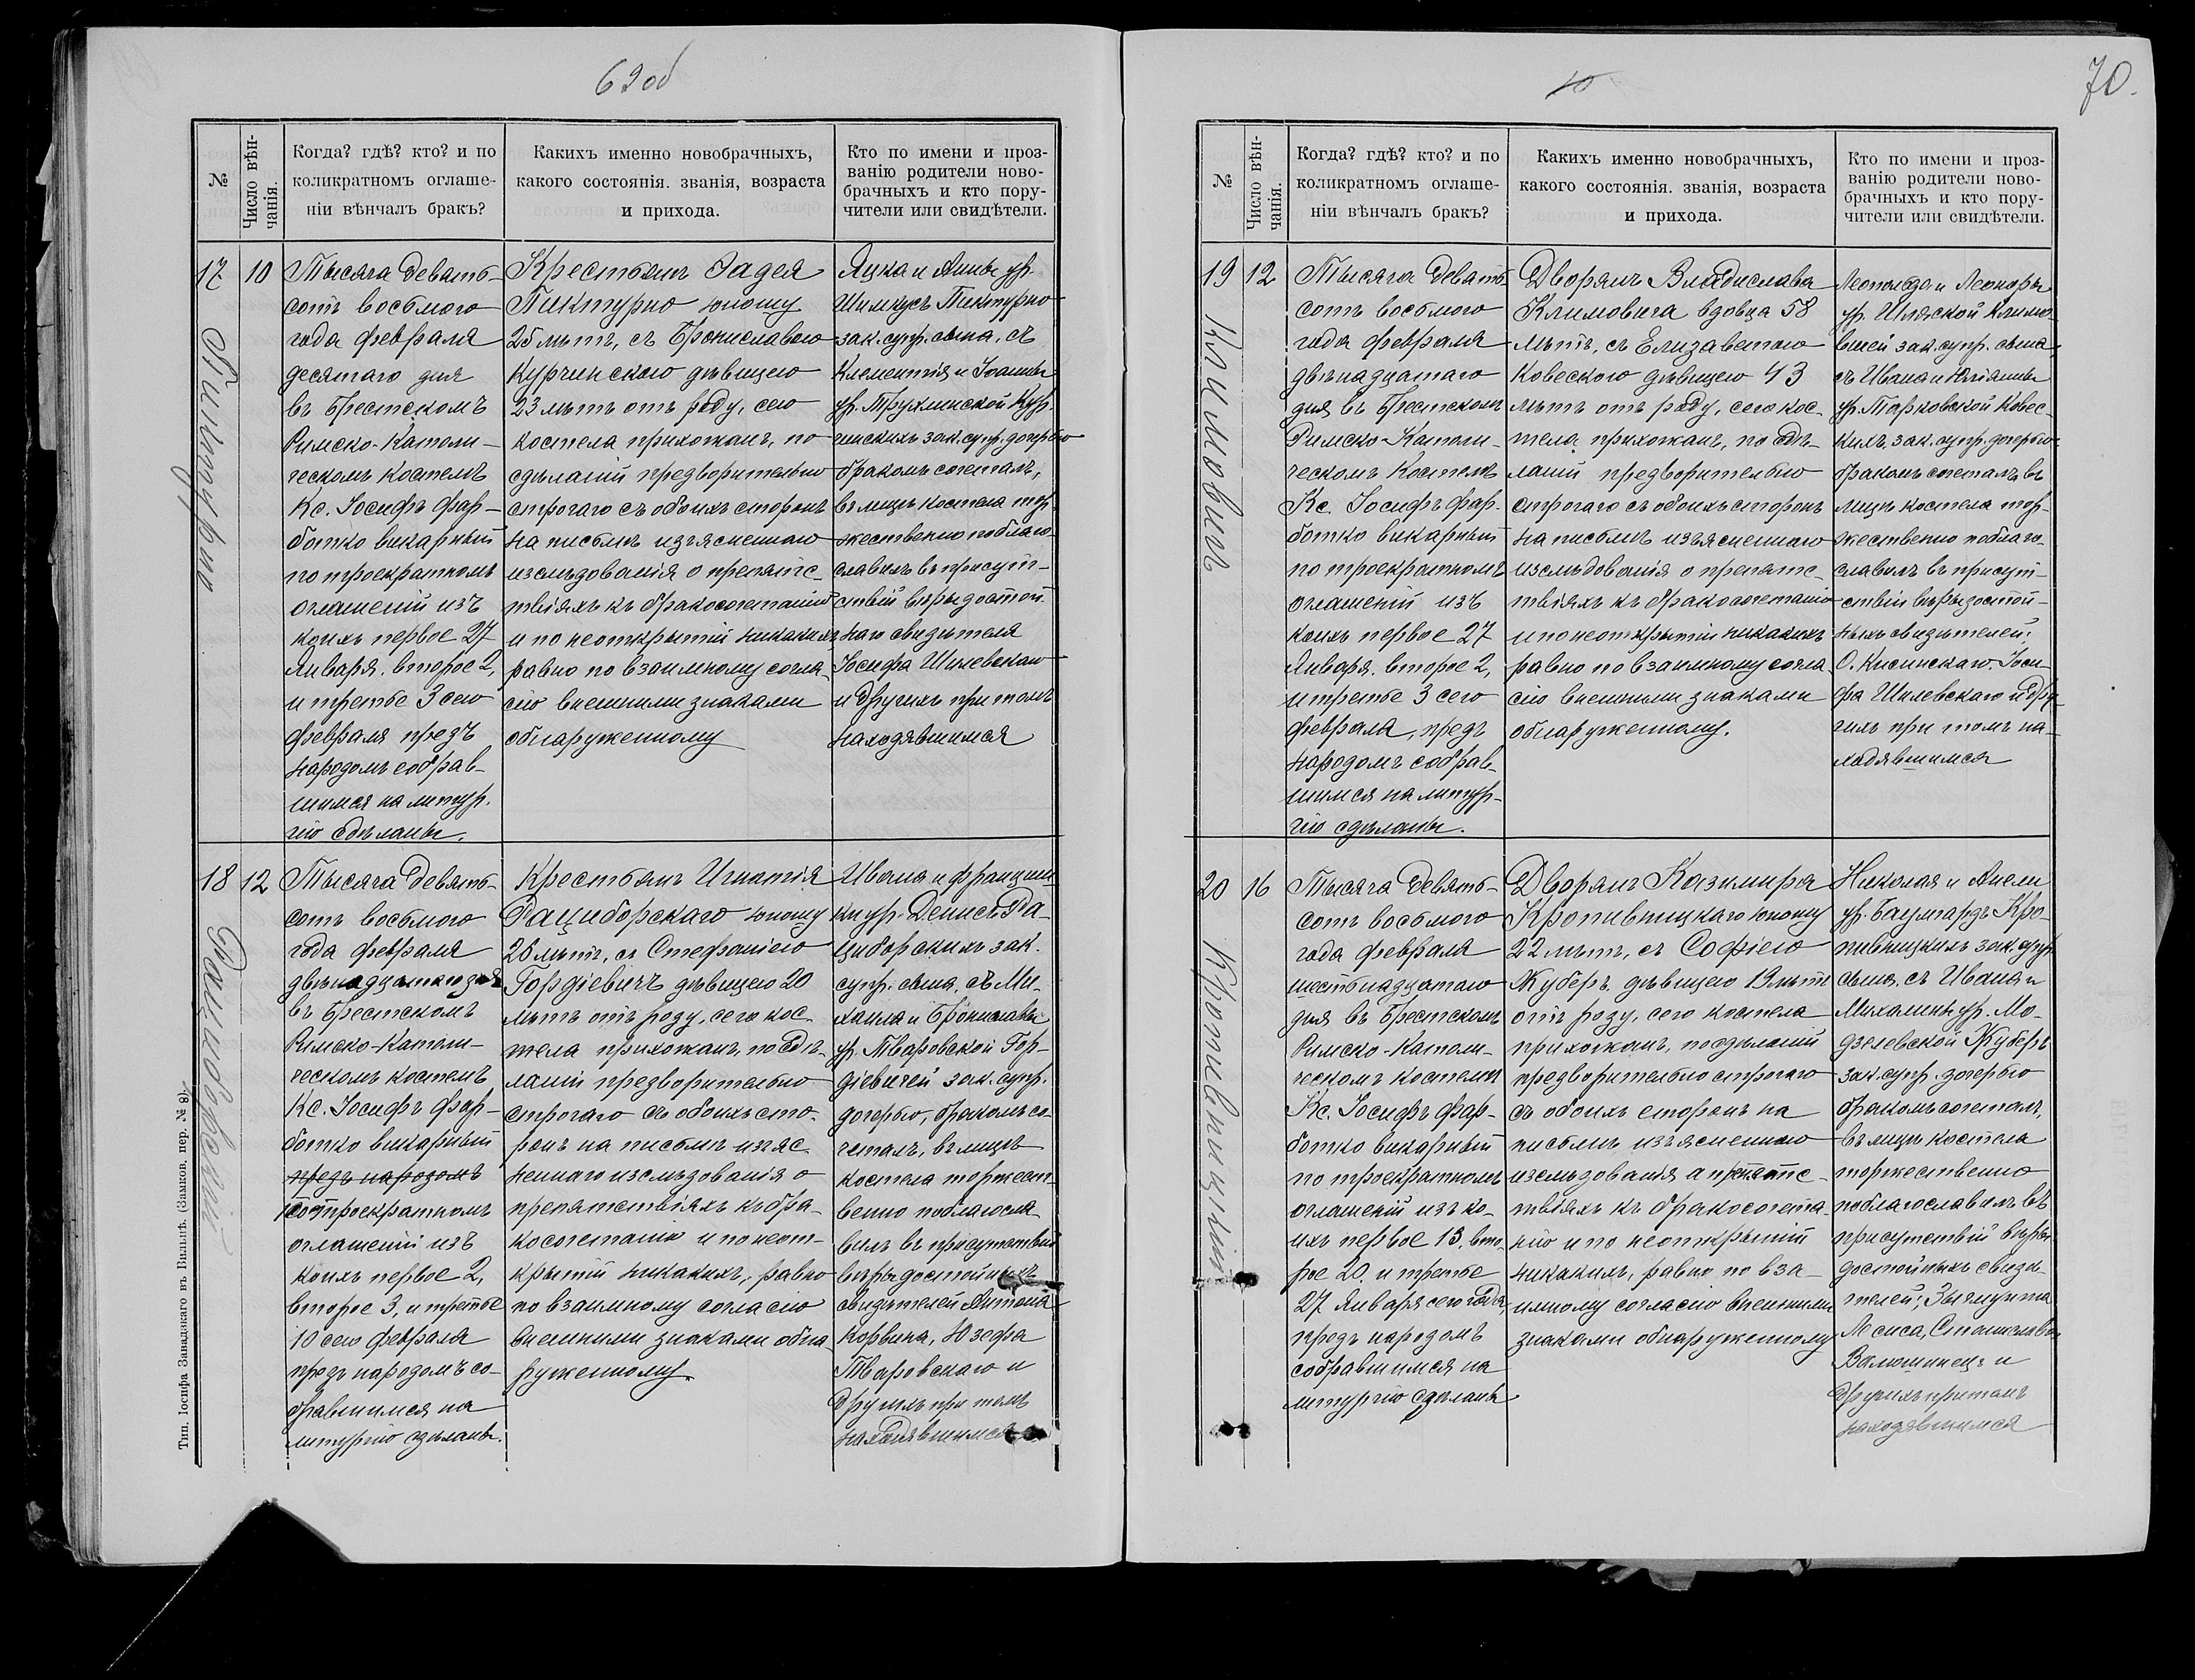 69об
№
Число вѣн-
чанія.
Когда? гдѣ? кто? и по
коликратномъ оглаше-
ніи вѣнчалъ бракъ?
Какихъ именно новобрачныхъ,
какого состоянія. званія, возраста
и прихода.
Кто по имени и проз-
ванію родители ново-
брачныхъ и кто пору-
чители или свидѣтели.
17
Пиктурно
10
Тысяча девять-
сотъ восьмого
года февраля
десятаго дня
въ Брестскомъ
Римско-Католи-
ческомъ костелѣ
Кс. Іосифъ Фар-
ботко викарный
по троекратномъ
оглашеніи изъ
коихъ первое 27
Января, второе 2,
и третье 3 сего
февраля предъ
народомъ собрав-
шимся на литур-
гію сдѣланы.
Крестьянъ Фадея
Пиктурно юношу
25 лѣтъ, съ Брониславою
Курчинскою дѣвицею
23 лѣтъ отъ роду, сего
костела прихожанъ, по
сдѣланіи предворительно
строгаго съ обоихъ сторонъ
на письмѣ изъясненнаго
изслѣдованія о препятс-
твіяхъ къ бракосочетанію
и по неоткрытіи никакихъ
равно по взаимному согла-
сію внешними знаками
обнаруженному
Яцка и Анны ур.
Шимкусъ Пиктурно
зак. супр. сына, съ
Клементія и Іоанны
ур. Трухлинской Кур-
чинскихъ зак. супр. дочерью
бракомъ сочеталъ,
въ лицѣ костела тор-
жественно поблаго-
славилъ въ присут-
ствіи вѣрыдостой-
наго свидѣтеля
Іосифа Шилевскаго
и другихъ при томъ
находявшимся
18
Рациборскій
12
Тысяча девять-
сотъ восьмого
года февраля
двѣнадцатаго дня
въ Брестскомъ
Римско-Католи-
ческомъ костелѣ
Кс. Іосифъ Фар-
ботко викарный
предъ народомъ
по троекратномъ
оглашеніи изъ
коихъ первое 2,
второе 3, и третье
10 сего февраля
предъ народомъ со-
бравшимся на
литургію сдѣланы.
Крестьянъ Игнатія
Рациборскаго юношу
26 лѣтъ, съ Стефаніею
Гордіевичъ дѣвицею 20
лѣтъ отъ роду, сего кос-
тела прихожанъ, по сдѣ-
ланіи предворительно
строгаго съ обоихъ сто-
ронъ на письмѣ изъяс-
неннаго изслѣдованія о
препятствіяхъ къ бра-
косочетанію и по неот-
крытіи никакихъ, равно
по взаимному согласію
внешними знаками обна-
руженному.
Ивана и Францишки
ур. Денисъ Ра-
циборскихъ зак.
супр. сына, съ Ми-
хаила и Брониславы
ур. Тваровской Гор-
діевичей зак. супр.
дочерью, бракомъ со-
четалъ, въ лицѣ
костела торжест-
венно поблагосла-
вилъ въ присутствіи
вѣрыдостойныхъ
свидѣтелей Антона
Корвина, Юзефа
Тваровскаго и
другихъ при томъ
находявшимся
Тип. Іосифа Завадзкаго въ Вильнѣ. (Замков. пер. № 8).
10
70.
№
Число вѣн-
чанія.
Когда? гдѣ? кто? и по
коликратномъ оглаше-
ніи вѣнчалъ бракъ?
Какихъ именно новобрачныхъ,
какого состоянія. званія, возраста
и прихода.
Кто по имени и проз-
ванію родители ново-
брачныхъ и кто пору-
чители или свидѣтели.
19
Климовичъ
12
Тысяча девять-
сотъ восьмого
года февраля
двѣнадцатаго
дня въ Брестскомъ
Римско-Католи-
ческомъ Костелѣ
Кс. Іосифъ Фар-
ботко викарный
по троекратномъ
оглашеніи изъ
коихъ первое 27
Января, второе 2,
и третье 3 сего
февраля, предъ
народомъ собрав-
шимся на литур-
гію сдѣланы.
Дворянъ Владислава
Климовича вдовца 58
лѣтъ, съ Елизаветою
Ковескою дѣвицею 43
лѣтъ отъ роду, сего кос-
тела прихожанъ, по сдѣ-
ланіи предворительно
строгаго съ обоихъ сторонъ
на письмѣ изъясненнаго
изслѣдованія о препятс-
твіяхъ къ бракосочетанію
и по неоткрытіи никакихъ
равно по взаимному согла-
сію внешними знаками
обнаруженному.
Леопольда и Леоноры
ур. Шляской Климо-
вичей зак. супр. сына
съ Ивана и Юліанны
ур. Тарковской Ковес-
кихъ зак. супр. дочерью
бракомъ сочеталъ въ
лицѣ костела тор-
жественно поблаго-
славилъ въ присут-
ствіи вѣрыдостой-
ныхъ свидѣтелей:
О. Кисинскаго Іоси-
фа Шилевскаго и дру-
гихъ при томъ на-
ходявшимся
20
Кропивницкій
16
Тысяча девять-
сотъ восьмого
года февраля
шестьнадцатаго
дня въ Брестскомъ
Римско-Католи-
ческомъ костелѣ
Кс. Іосифъ Фар-
ботко викарный
по троекратномъ
оглашеніи изъ ко-
ихъ первое 13, вто-
рое 20, и третье
27 Января сего года,
предъ народомъ
собравшимся на
литургію сдѣланы
Дворянъ Казимира
Кропивницкаго юношу
22 лѣтъ, съ Софіею
Жуберъ дѣвицею 19 лѣтъ
отъ роду, сего костела
прихожанъ, по сдѣланіи
предворительно строгаго
съ обоихъ сторонъ на
письмѣ изъясненнаго
изслѣдованія о препятс-
твіяхъ къ бракосочета-
нію и по неоткрытіи
никакихъ, равно по вза-
имному согласію внешними
знаками обнаруженному
Николая и Анели
ур. Баумгардъ Кро-
пивницкихъ зак. супр.
сына, съ Ивана и
Михалины ур. Мо-
дзелевской Жуберъ
зак. супр. дочерью
бракомъ сочеталъ,
въ лицѣ костела
торжественно
поблагославилъ въ
присутствіи вѣры-
достойныхъ свидѣ-
телей: Зыгмунта
Станислава
и
другихъ при томъ
находявшимся